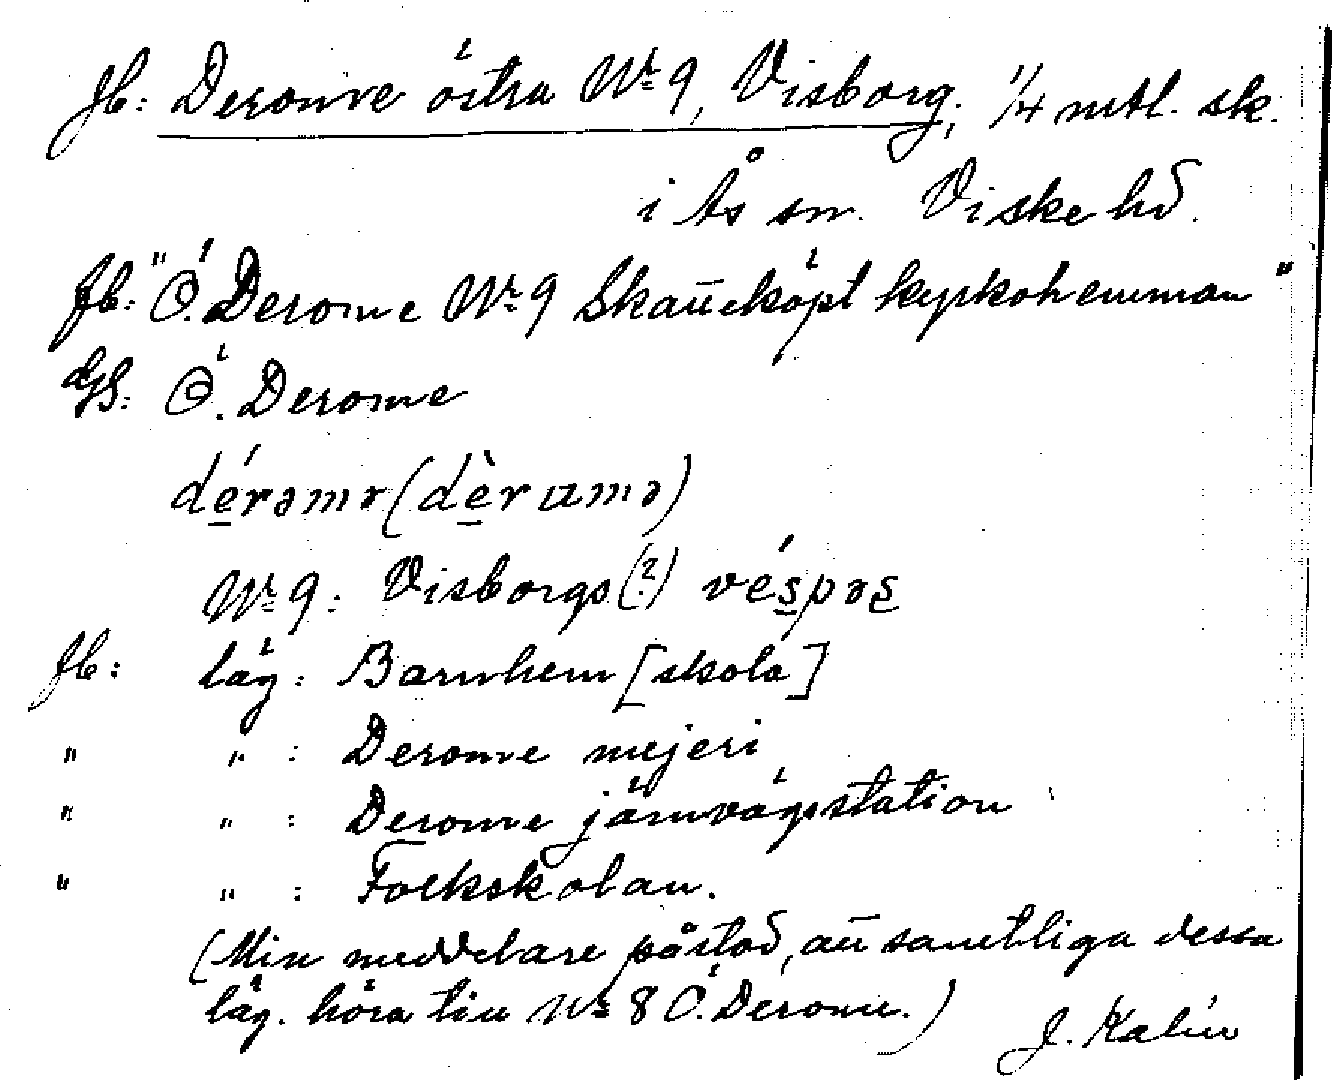 Jb: Derome östra Nr 9, Visborg; 1/4 mtl. sk.
i Ås sn. Viske hd.
Jb: "Ö. Derome Nr 9 Skatteköpt kyrkohemman"
GS: Ö. Derome
dérəmə (dèramə)
Nr 9: Visborgs(?) véspəs
Jb: läg: Barnhem [skola]
" " : Derome mejeri
" " : Derome järnvägsstation
" " : Folkskolan.
(Min meddelare påstod, att samtliga dessa
läg. höra till Nr 8 Ö. Derome.)
J. Kalén